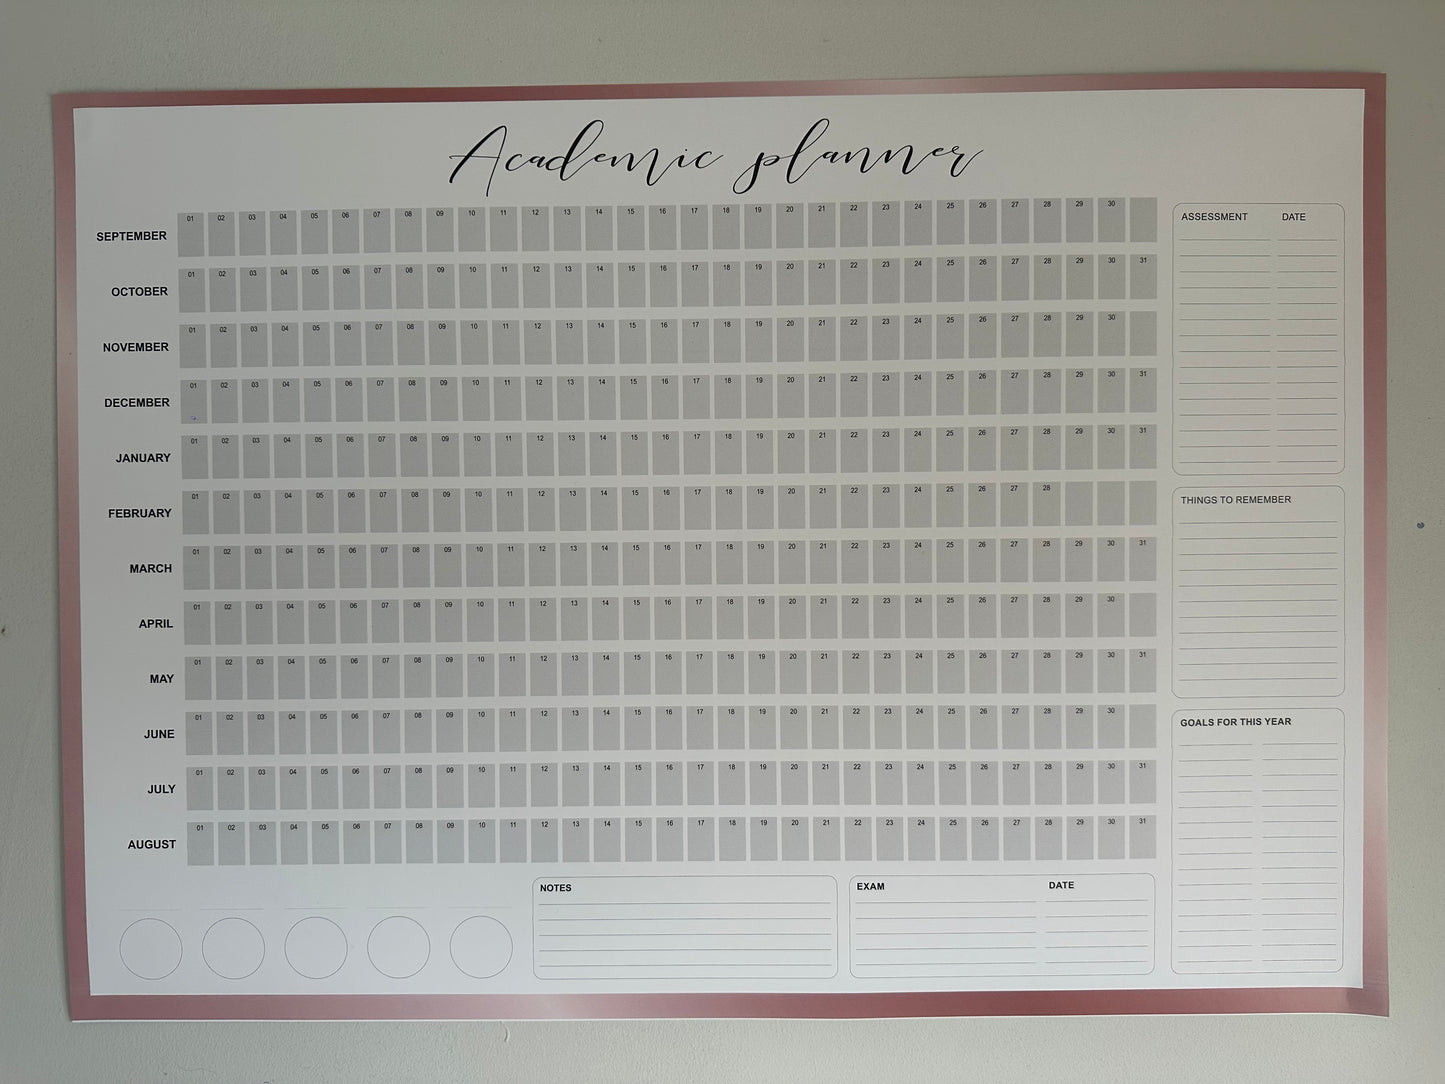 Academic planner
SEPTEMBER 01 02 03 04 05 06 07 08 09 10 11 12 13 14 15 16 17 18 19 20 21 22 23 24 25 26 27 28 29 30
OCTOBER 01 02 03 04 05 06 07 08 09 10 11 12 13 14 15 16 17 18 19 20 21 22 23 24 25 26 27 28 29 30 31
NOVEMBER 01 02 03 04 05 06 07 08 09 10 11 12 13 14 15 16 17 18 19 20 21 22 23 24 25 26 27 28 29 30
DECEMBER 01 02 03 04 05 06 07 08 09 10 11 12 13 14 15 16 17 18 19 20 21 22 23 24 25 26 27 28 29 30 31
JANUARY 01 02 03 04 05 06 07 08 09 10 11 12 13 14 15 16 17 18 19 20 21 22 23 24 25 26 27 28 29 30 31
FEBRUARY 01 02 03 04 05 06 07 08 09 10 11 12 13 14 15 16 17 18 19 20 21 22 23 24 25 26 27 28
MARCH 01 02 03 04 05 06 07 08 09 10 11 12 13 14 15 16 17 18 19 20 21 22 23 24 25 26 27 28 29 30 31
APRIL 01 02 03 04 05 06 07 08 09 10 11 12 13 14 15 16 17 18 19 20 21 22 23 24 25 26 27 28 29 30
MAY 01 02 03 04 05 06 07 08 09 10 11 12 13 14 15 16 17 18 19 20 21 22 23 24 25 26 27 28 29 30 31
JUNE 01 02 03 04 05 06 07 08 09 10 11 12 13 14 15 16 17 18 19 20 21 22 23 24 25 26 27 28 29 30
JULY 01 02 03 04 05 06 07 08 09 10 11 12 13 14 15 16 17 18 19 20 21 22 23 24 25 26 27 28 29 30 31
AUGUST 01 02 03 04 05 06 07 08 09 10 11 12 13 14 15 16 17 18 19 20 21 22 23 24 25 26 27 28 29 30 31
ASSESSMENT DATE
THINGS TO REMEMBER
GOALS FOR THIS YEAR
NOTES
EXAM DATE